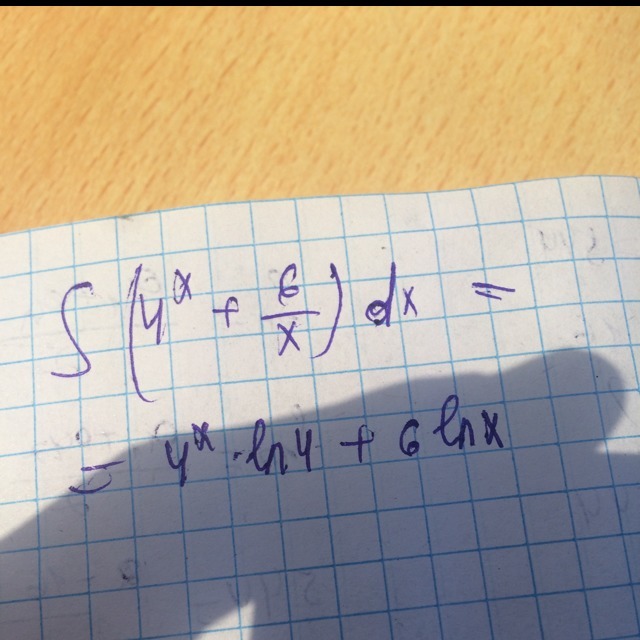 ∫ (4^x + 6/x) dx =
= 4^x · ln4 + 6 lnx